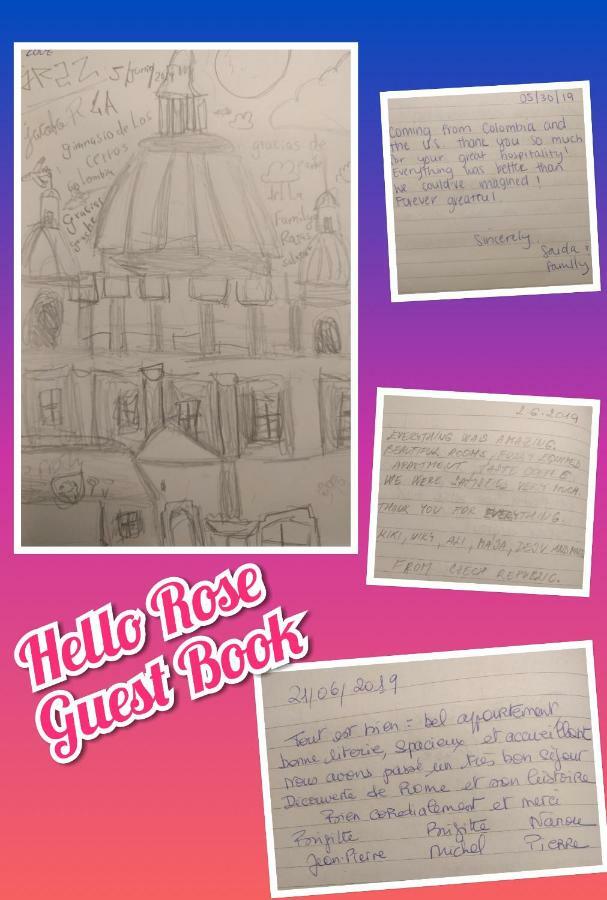 LOVE
5/Junio/2019
Jacobo RGA
gimnasio de los
cerros
Colombia
Gracias
gracias de
parte
de La
Familia
Rojas
05/30/19
Coming from Colombia and
the U.S. thank you so much
for your great hospitality!
Everything was better than
we could've imagined!
Forever greatful!
Sincerely,
Saida &
family
2.6.2019
EVERYTHING WAS AMAZING.
BEAUTIFUL ROOMS, FULLY EQUIPPED
APARTMENT, TASTE COFFEE.
WE WERE SATISFIED VERY MUCH.
THANK YOU FOR EVERYTHING.
NIKI, VIKY, ALI, MÁJA, DEJV AND
FROM CZECH REPUBLIC.
Hello Rose
Guest Book
21/06/2019
Tout est bien = bel appartement
bonne literie, spacieux et accueillant
Nous avons passé un très bon séjour
Découverte de Rome et son histoire
Bien cordialement et merci
Brigitte Brigitte Nanou
Jean-Pierre Michel PIERRE